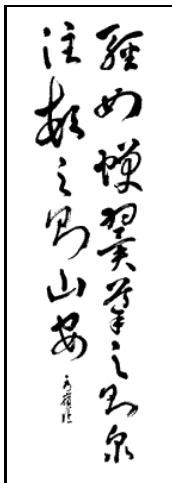 輕如蟬翼導之則泉
注頓之則山安